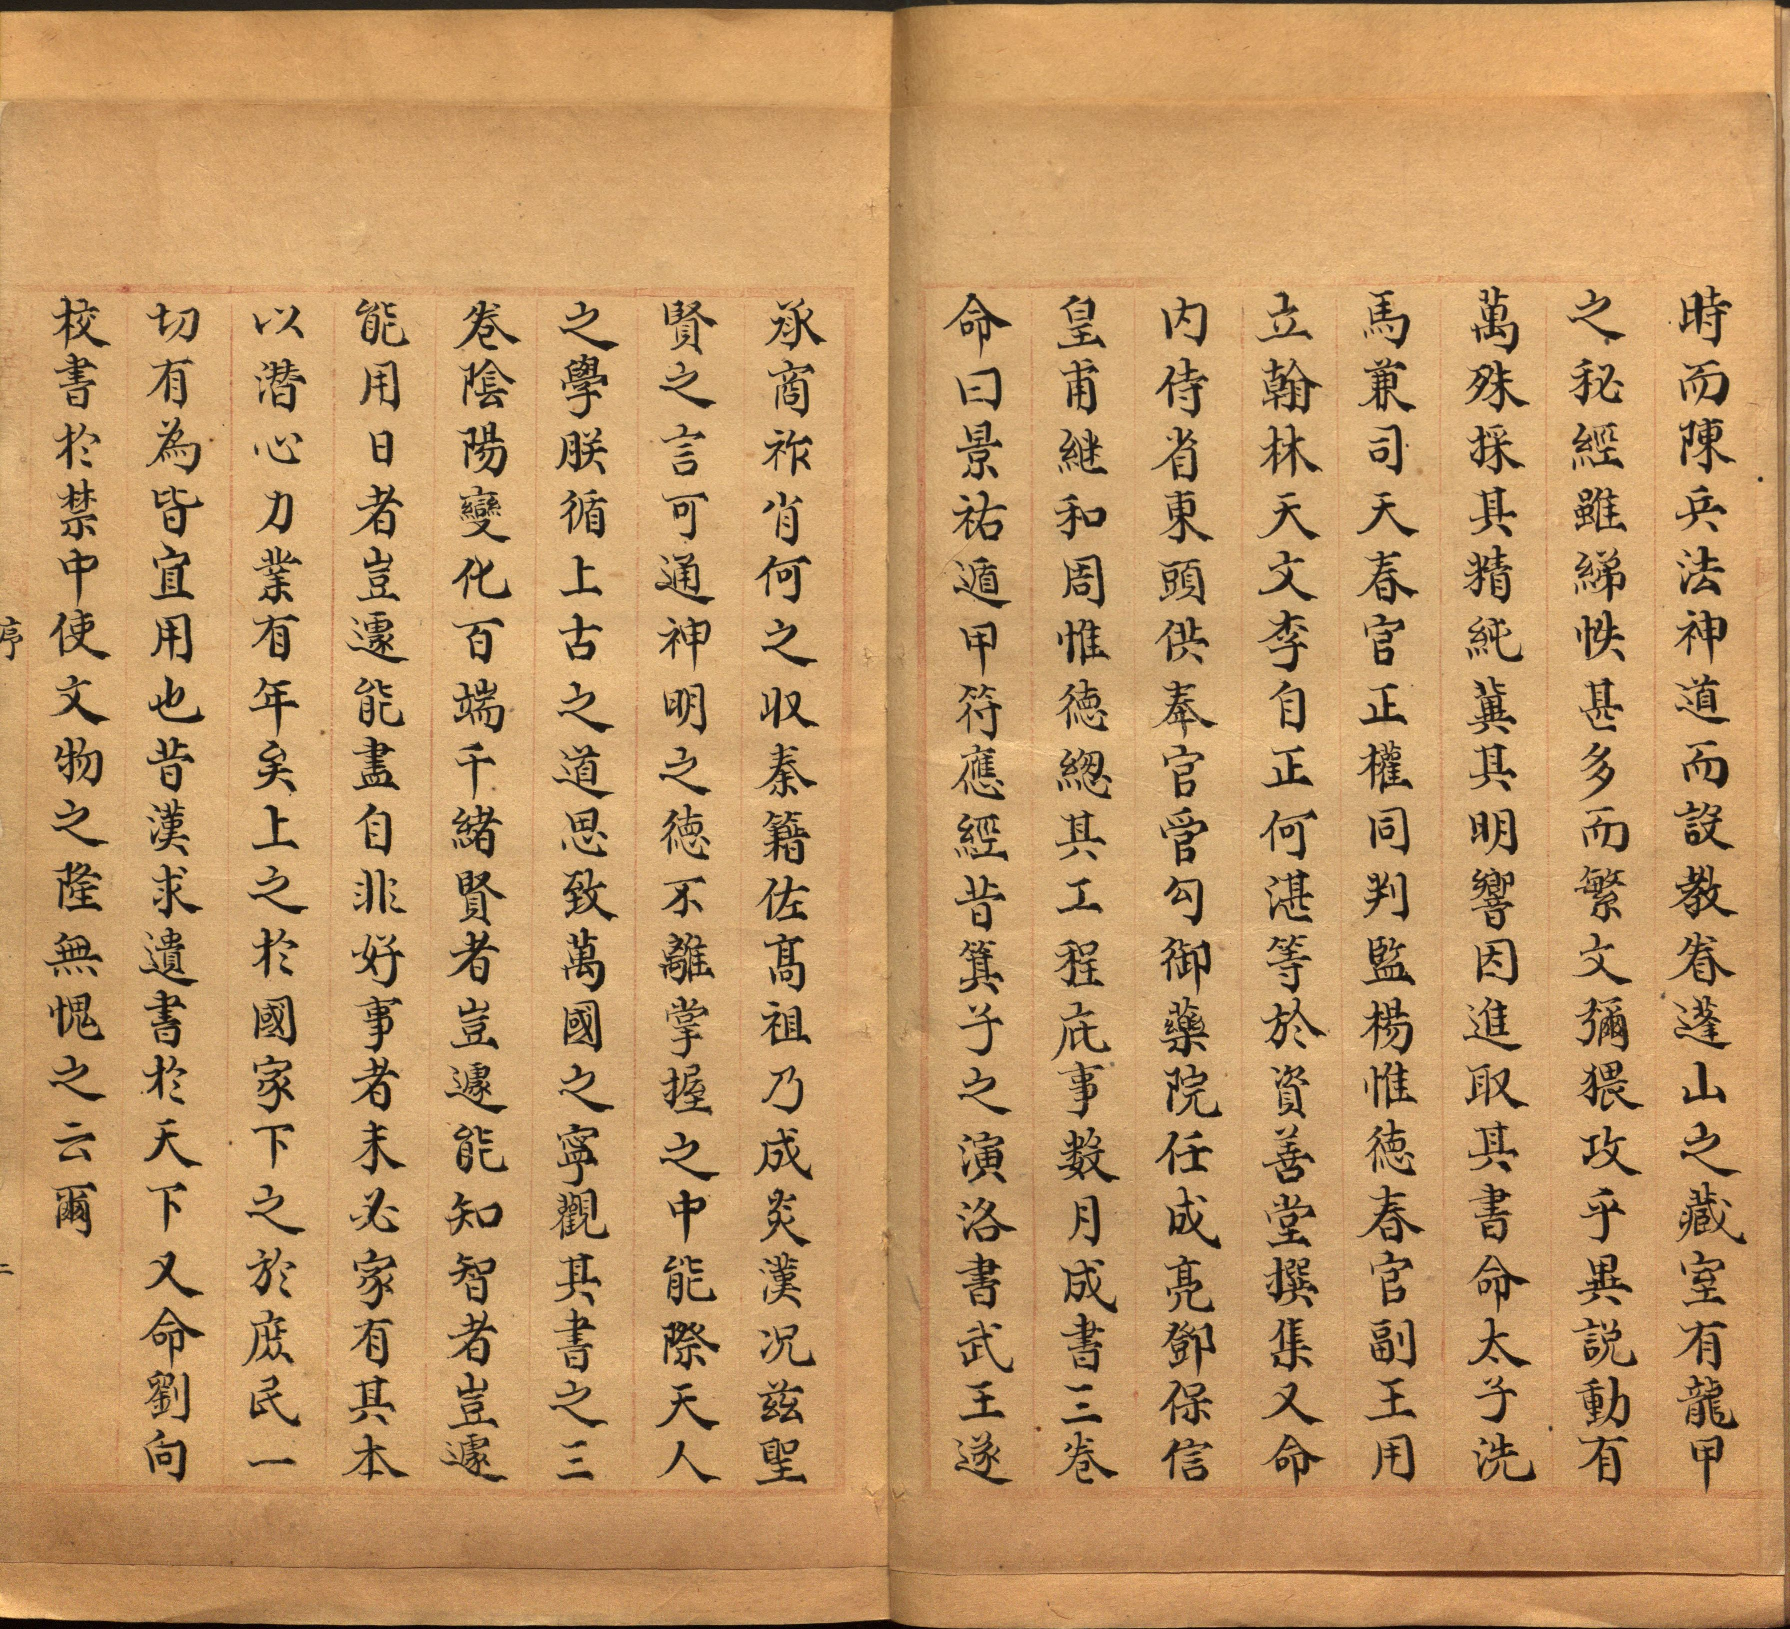 時而陳兵法神道而設教眷蓬山之藏室有龍甲
之秘經雖綈帙甚多而繁文彌猥攻乎異説動有
萬殊採其精純冀其明響因進取其書命太子洗
馬兼司天春官正權同判監楊惟德春官副王用
立翰林天文李自正何湛等於資善堂撰集又命
内侍省東頭供奉官管勾御藥院任成亮鄧保信
皇甫継和周惟德總其工程庇事數月成書三卷
命曰景祐遁甲符應經昔箕子之演洛書武王遂
承商祚肖何之収秦籍佐髙祖乃成炎漢况兹聖
賢之言可通神明之德不離掌握之中能際天人
之學朕循上古之道思致萬國之寧觀其書之三
卷陰陽變化百端千緒賢者豈遽能知智者豈遽
能用日者豈遽能盡自非好事者未必家有其本
以潜心力業有年矣上之於國家下之於庶民一
切有為皆宜用也昔漢求遺書於天下又命劉向
校書於禁中使文物之隆無愧之云爾
序
二